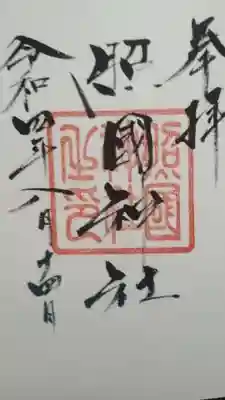 奉拝
照國神社
令和四年八月十四日
照國神社之印